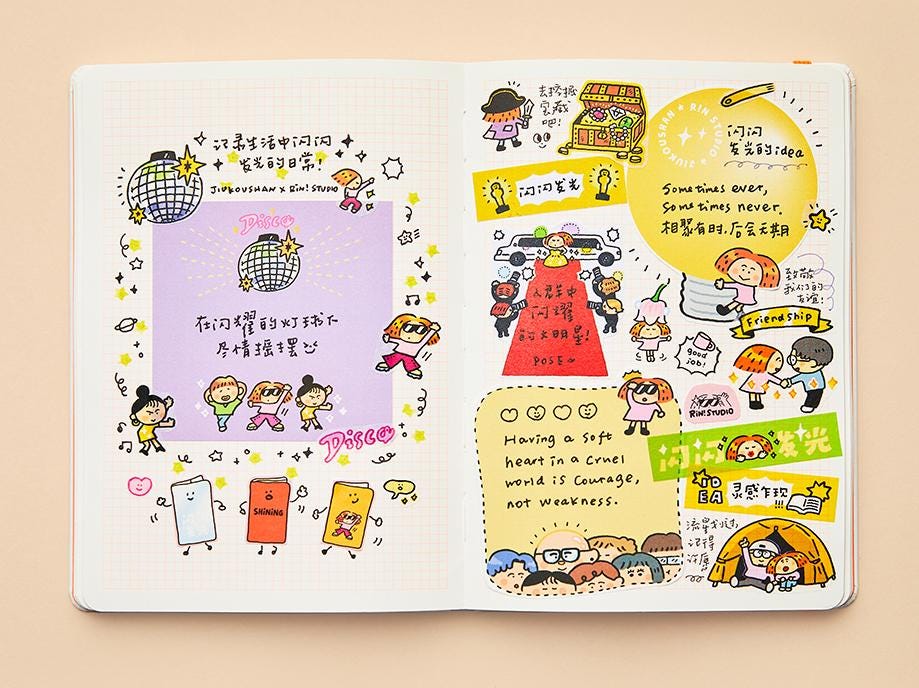 记录生活中闪闪
发光的日常!
JIUKOUSHAN X RiN! STUDIO
Disco
在闪耀的灯球下
尽情摇摆
Disco
SHiNiNG
去挖掘
宝藏
吧!
闪闪发光
JIUKOUSHAN ★ RIN STUDIO ★
闪闪
发光的idea
Sometimes ever,
Sometimes never.
相聚有时,后会无期
人群中
闪耀
的大明星!
POSE
致敬
我们的
友谊!
Friendship
good
job!
RiN! STUDIO
Having a soft
heart in a cruel
world is courage,
not weakness.
闪闪发光
IDEA
灵感乍现!!!
流星划过,
记得
许愿